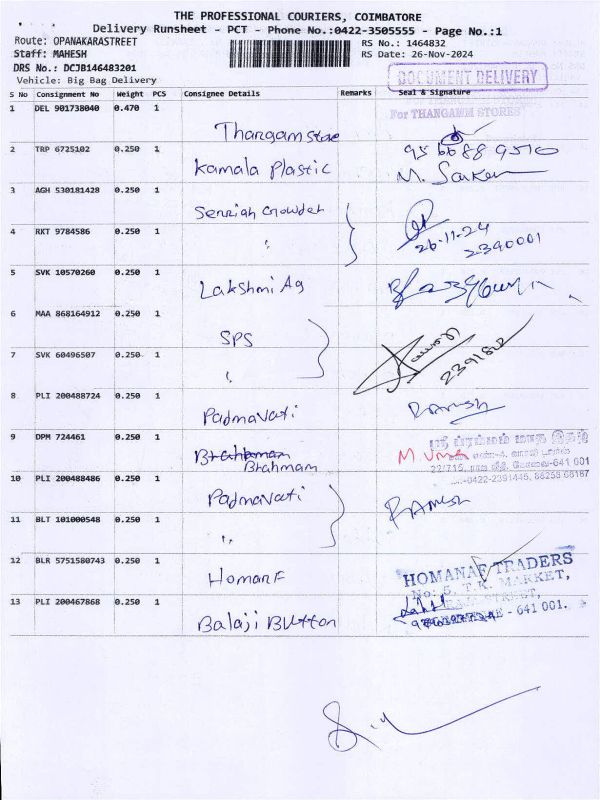 THE PROFESSIONAL COURIERS, COIMBATORE
Delivery Runsheet - PCT - Phone No.:0422-3505555 - Page No.:1
Route: OPANAKARASTREET RS No.: 1464832
Staff: MAHESH RS Date: 26-Nov-2024
DRS No.: DCJB146483201
Vehicle: Big Bag Delivery
DOCUMENT DELIVERY
S No Consignment No Weight PCS Consignee Details Remarks Seal & Signature
For THANGAMM STORES
1 DEL 901738040 0.470 1 Thangam store
2 TRP 6725102 0.250 1 Kamala Plastic 9566889510
M. Sarken
3 AGH 530181428 0.250 1 Senniah Crowder
26-11-24
4 RKT 9784586 0.250 1 " 2390001
5 SVK 10570260 0.250 1 Lakshmi Ag
6 MAA 868164912 0.250 1 SPS
7 SVK 60496507 0.250 1 "
8 PLI 200488724 0.250 1 Padmavati Ramesh
9 DPM 724461 0.250 1 Brahmam
Brahmam M. Uma
22/715, ராஜ வீதி, கோவை-641 001
0422-2391445
10 PLI 200488486 0.250 1 Padmavati Ramesh
11 BLT 101000548 0.250 1 "
12 BLR 5751580743 0.250 1 HomanF
HOMANAF TRADERS
No: 5, T.K. MARKET,
STREET,
- 641 001.
13 PLI 200467868 0.250 1 Balaji Button